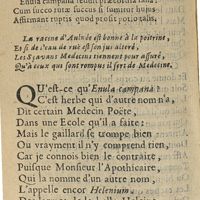 Enula campana reddit præcordia sana:
Cum succo rutæ succus si sumitur hujus,
Affirmant ruptis quod profit potio talis.
La racine d'Aulnée est bonne à la poitrine,
Et si de l'eau de ruë est son jus alteré,
Les Sçavans Medecins tiennent pour assuré,
Qu'à ceux qui sont rompus il sert de Medecine.
QU'est-ce qu'Enula campana?
C'est herbe qui d'autre nom n'a,
Dit certain Medecin Poëte,
Dans une Ecole qu'il a faite:
Mais le gaillard se trompe bien
Ou vrayment il n'y comprend rien,
Car je connois bien le contraire,
Puisque Monsieur l'Apothicaire,
Qui la nomme d'un autre nom,
L'appelle encor Helenium,